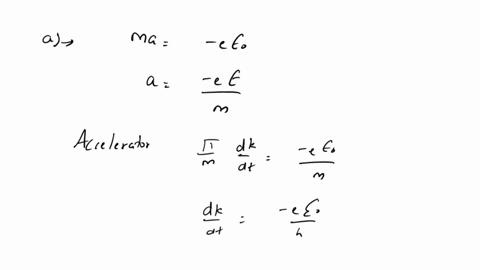 a)→ ma = -eE₀
a = -eE / m
Accelerator ħ/m dk/dt = -eE₀ / m
dk/dt = -eE₀ / ħ